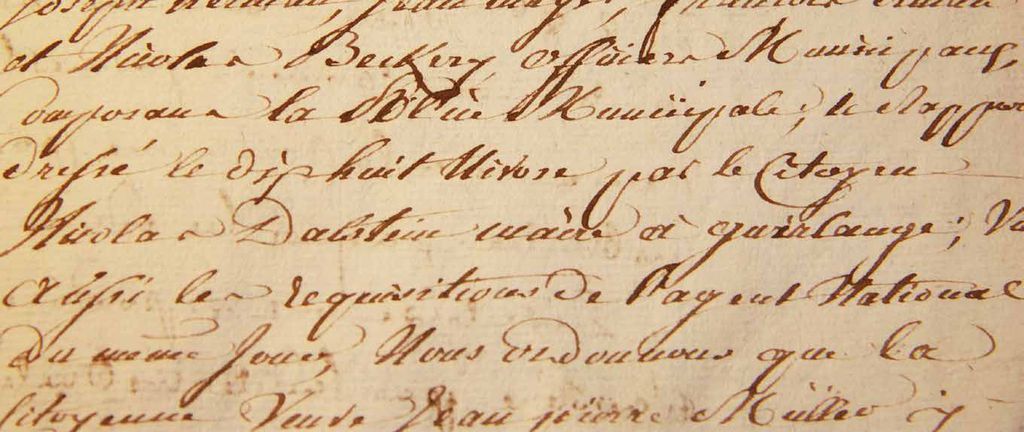 et Nicolas Beckery officiers Municipaux,
composans la Police Municipale; le Rappor
dressé le dix huit Nivose par le Citoyen
Nicolas Dalstein maire à guirlange; Vu
aussi les requisitions de l'agent National
du meme Jour, Nous ordonnons que la
Citoyenne Veuve Jean pierre Müller